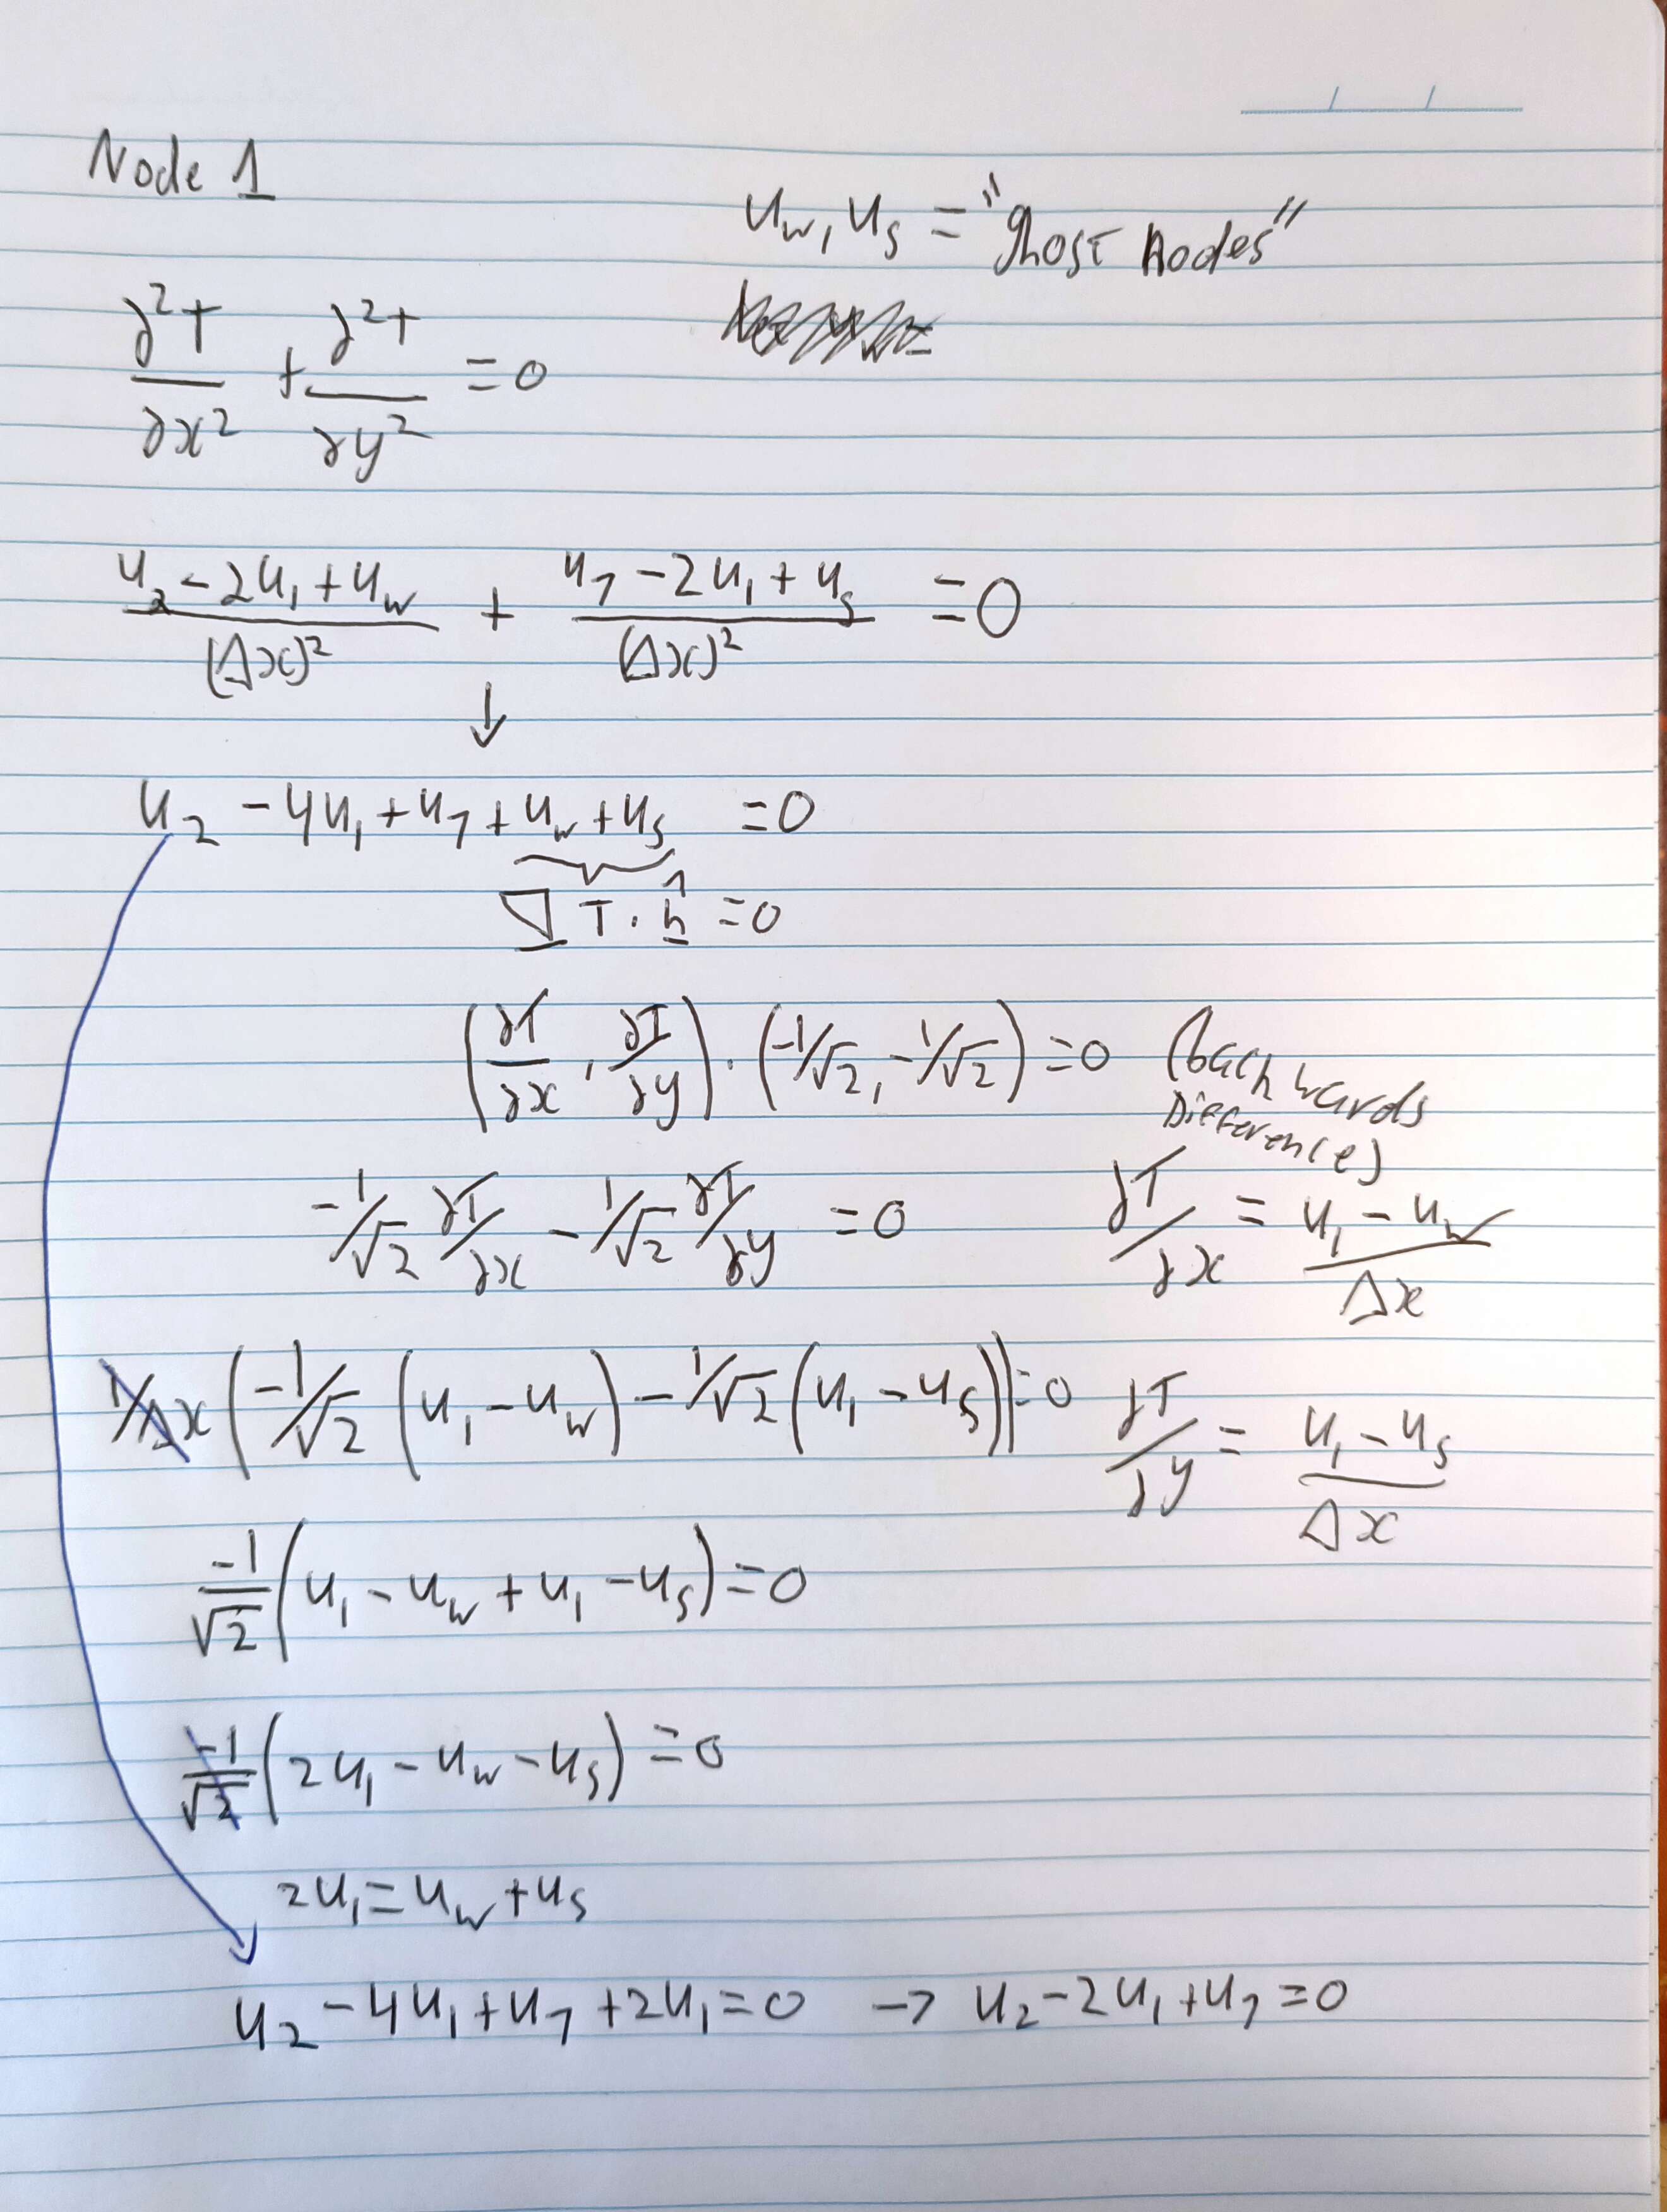 Node 1
u_w, u_s = "ghost nodes"
∂²T/∂x² + ∂²T/∂y² = 0
(u_2 - 2u_1 + u_w)/(Δx)² + (u_7 - 2u_1 + u_s)/(Δx)² = 0
↓
u_2 - 4u_1 + u_7 + u_w + u_s = 0
∇T · n̂ = 0
(∂T/∂x, ∂T/∂y) · (-1/√2, -1/√2) = 0 (backwards
Difference)
-1/√2 ∂T/∂x - 1/√2 ∂T/∂y = 0
∂T/∂x = (u_1 - u_w)/Δx
1/Δx (-1/√2 (u_1 - u_w) - 1/√2 (u_1 - u_s)) = 0
∂T/∂y = (u_1 - u_s)/Δx
-1/√2 (u_1 - u_w + u_1 - u_s) = 0
-1/√2 (2u_1 - u_w - u_s) = 0
2u_1 = u_w + u_s
u_2 - 4u_1 + u_7 + 2u_1 = 0 → u_2 - 2u_1 + u_7 = 0